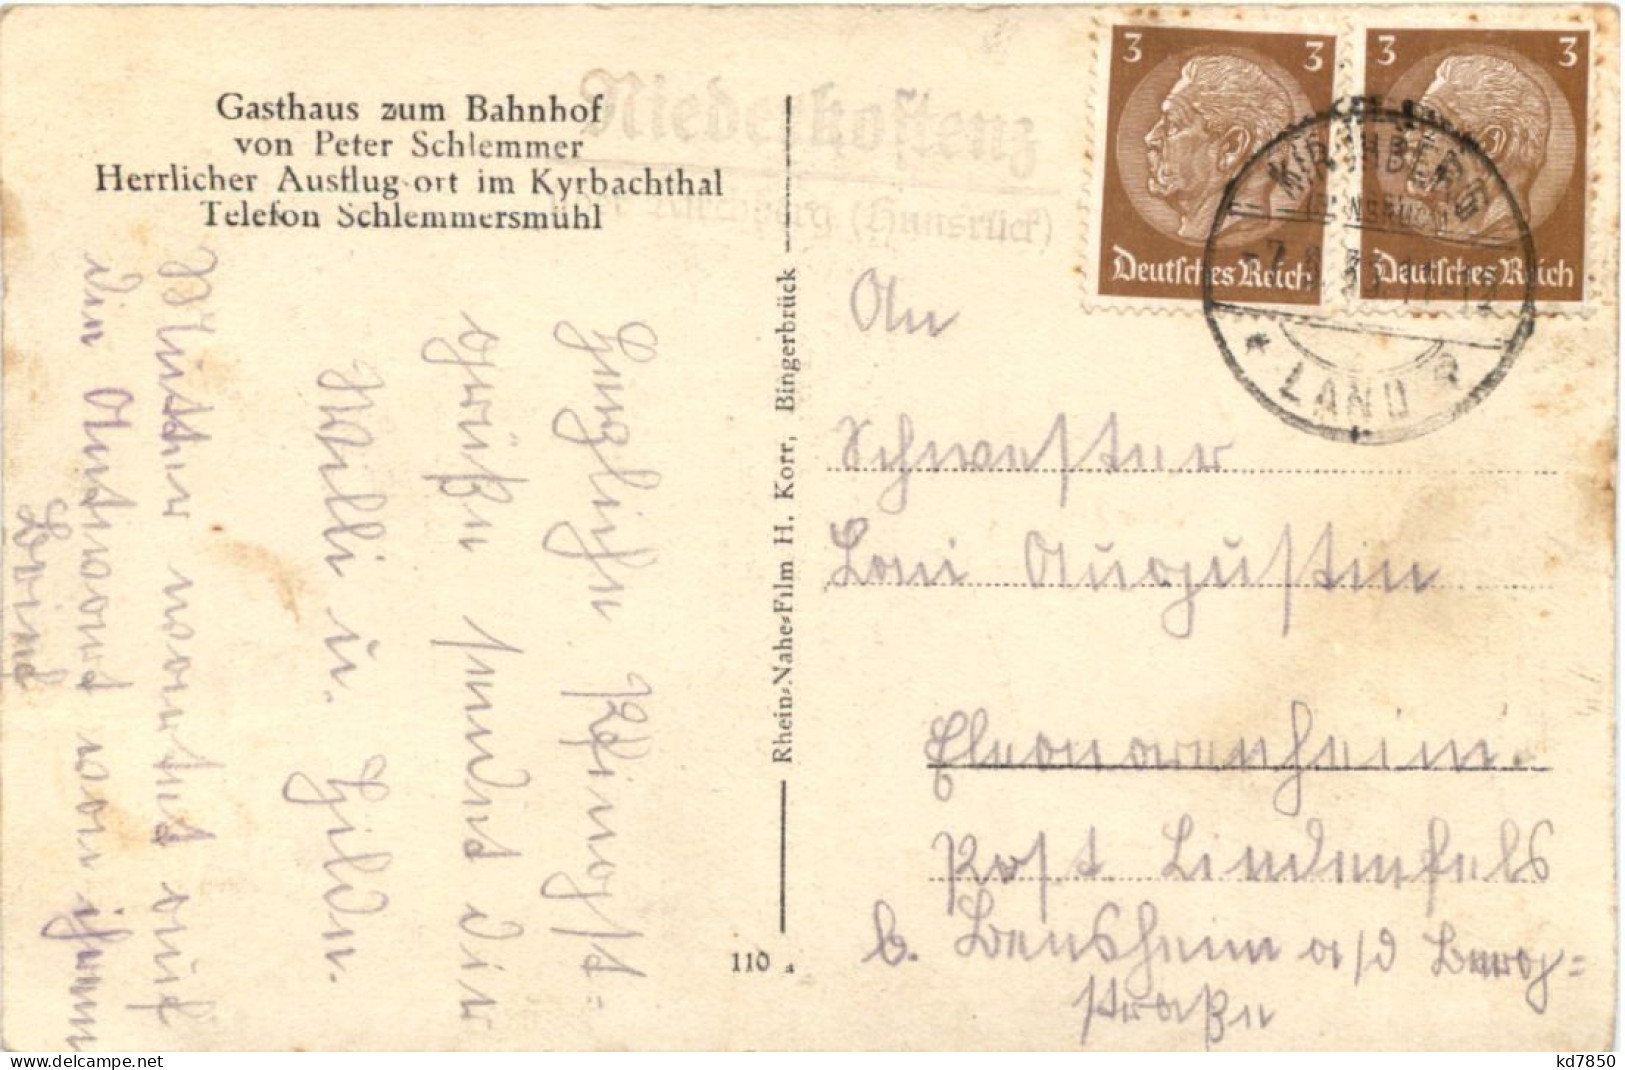 Gasthaus zum Bahnhof
von Peter Schlemmer
Herrlicher Ausflugsort im Kyrbachthal
Telefon Schlemmersmühl
Niederkostenz
über Kirchberg (Hunsrück)
3 3
Deutsches Reich
3 3
Deutsches Reich
KIRCHBERG
(HUNSRÜCK)
LAND
Herzliche Pfingst=
grüße sendet dir
Willi u. Hilde.
Mutter wartet auf
die Antwort von ihrem
Rhein=Nahe=Film H. Korr, Bingerbrück
110
An
Schwester
Loni Augustin
Eleonorenheim.
Post Lindenfels
b. Bensheim a/d Berg=
straße
kd7850